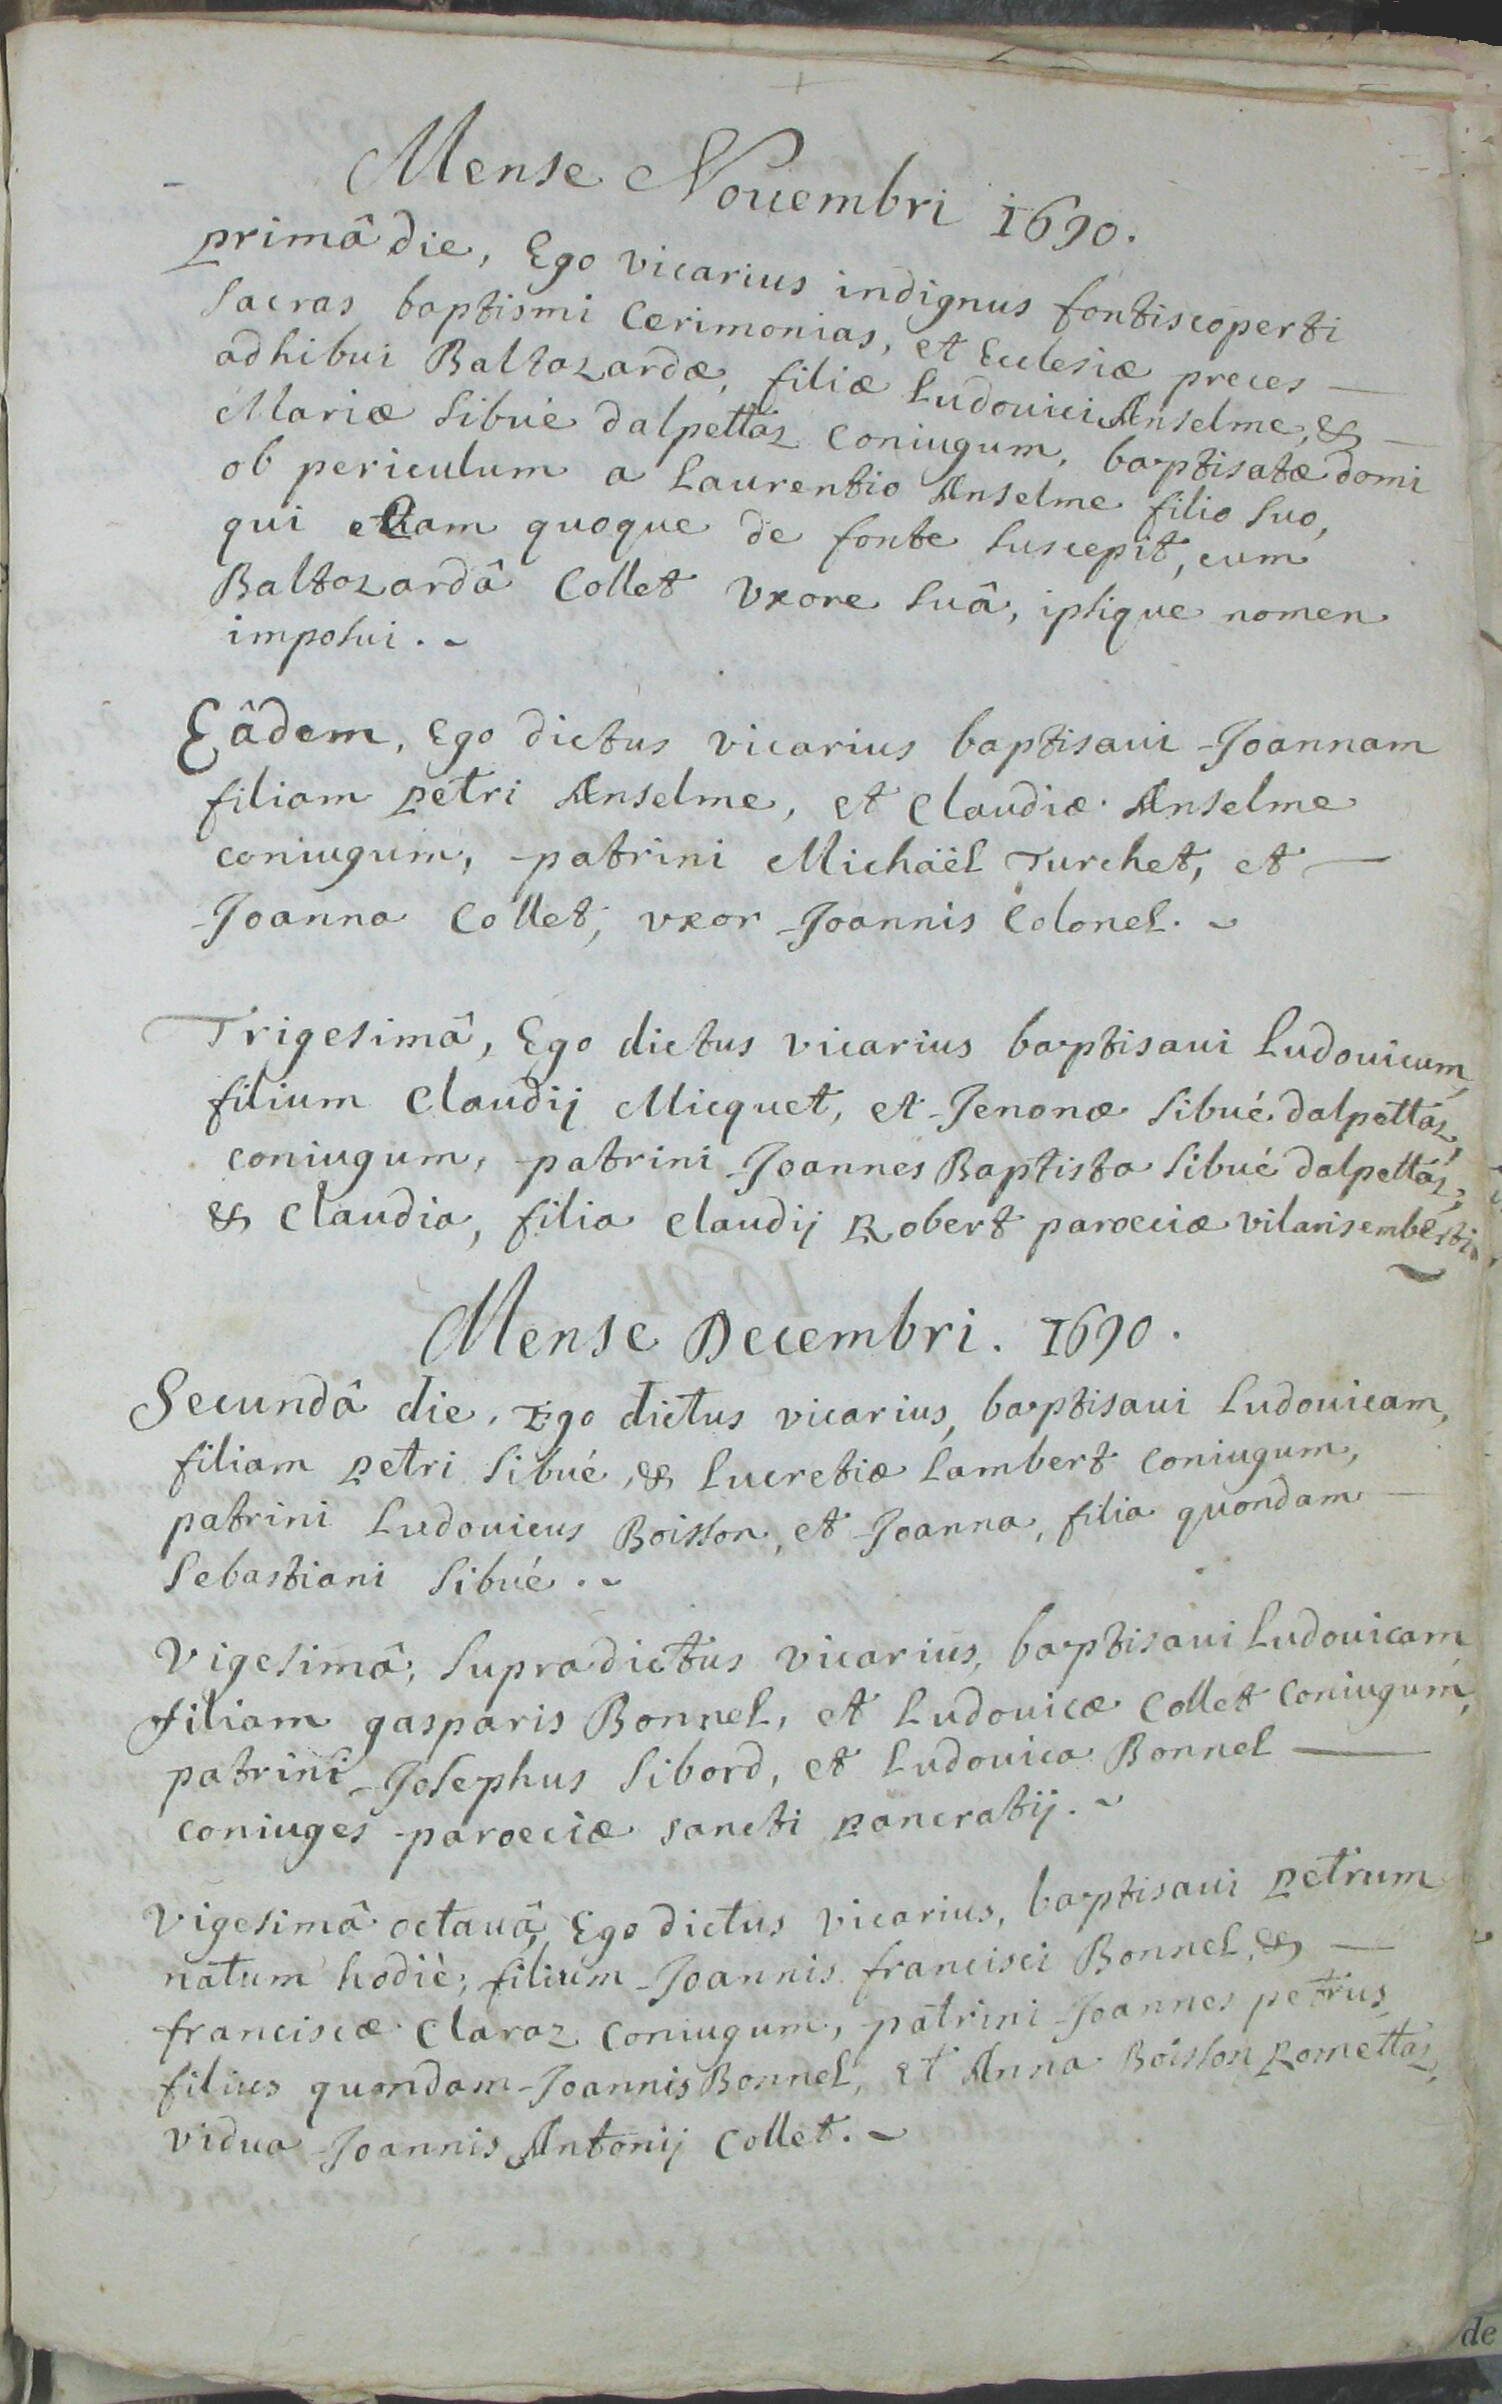 Mense Nouembri 1690.
primâ die, Ego vicarius indignus fontiscoperti
sacras baptismi Cerimonias, et Ecclesiæ preces —
adhibui Baltazardæ, filiæ Ludouici Anselme, & —
Mariæ Sibué dalpettaz coniugum, baptisatæ domi
ob periculum a Laurentio Anselme filio suo,
qui quoque de fonte suscepit, cum
Baltazardâ Collet vxore suâ, ipsique nomen
imposui. ~
Eâdem, Ego dictus vicarius baptisaui Joannam
filiam petri Anselme, et Claudiæ Anselme
coniugum, patrini Michaël Turchet, et —
Joanna Collet, vxor Joannis Colonel. ~
Trigesimâ, Ego dictus vicarius baptisaui Ludouicum,
filium Claudij Micquet, et Jenonæ Sibué dalpettaz,
coniugum, patrini Joannes Baptista Sibué dalpettaz,
& Claudia, filia Claudij Robert paroeciæ vilarisemberti.
Mense Decembri. 1690.
Secundâ die, Ego dictus vicarius, baptisaui Ludouicam,
filiam petri Sibué, & Lucretiæ Lambert coniugum,
patrini Ludouicus Boisson, et Joanna, filia quondam —
Sebastiani Sibué. ~
Vigesimâ, supradictus vicarius, baptisaui Ludouicam
filiam gasparis Bonnel, et Ludouicæ Collet coniugum,
patrini Josephus Sibord, et Ludouica Bonnel —
coniuges paroeciæ sancti pancratij. ~
Vigesimâ octauâ, Ego dictus vicarius, baptisaui petrum
natum hodiè, filium Joannis francisci Bonnel, & —
franciscæ Claraz coniugum, patrini Joannes petrus,
filius quondam Joannis Bonnel, et Anna Boisson Romettaz,
vidua Joannis Antonij Collet. ~
de